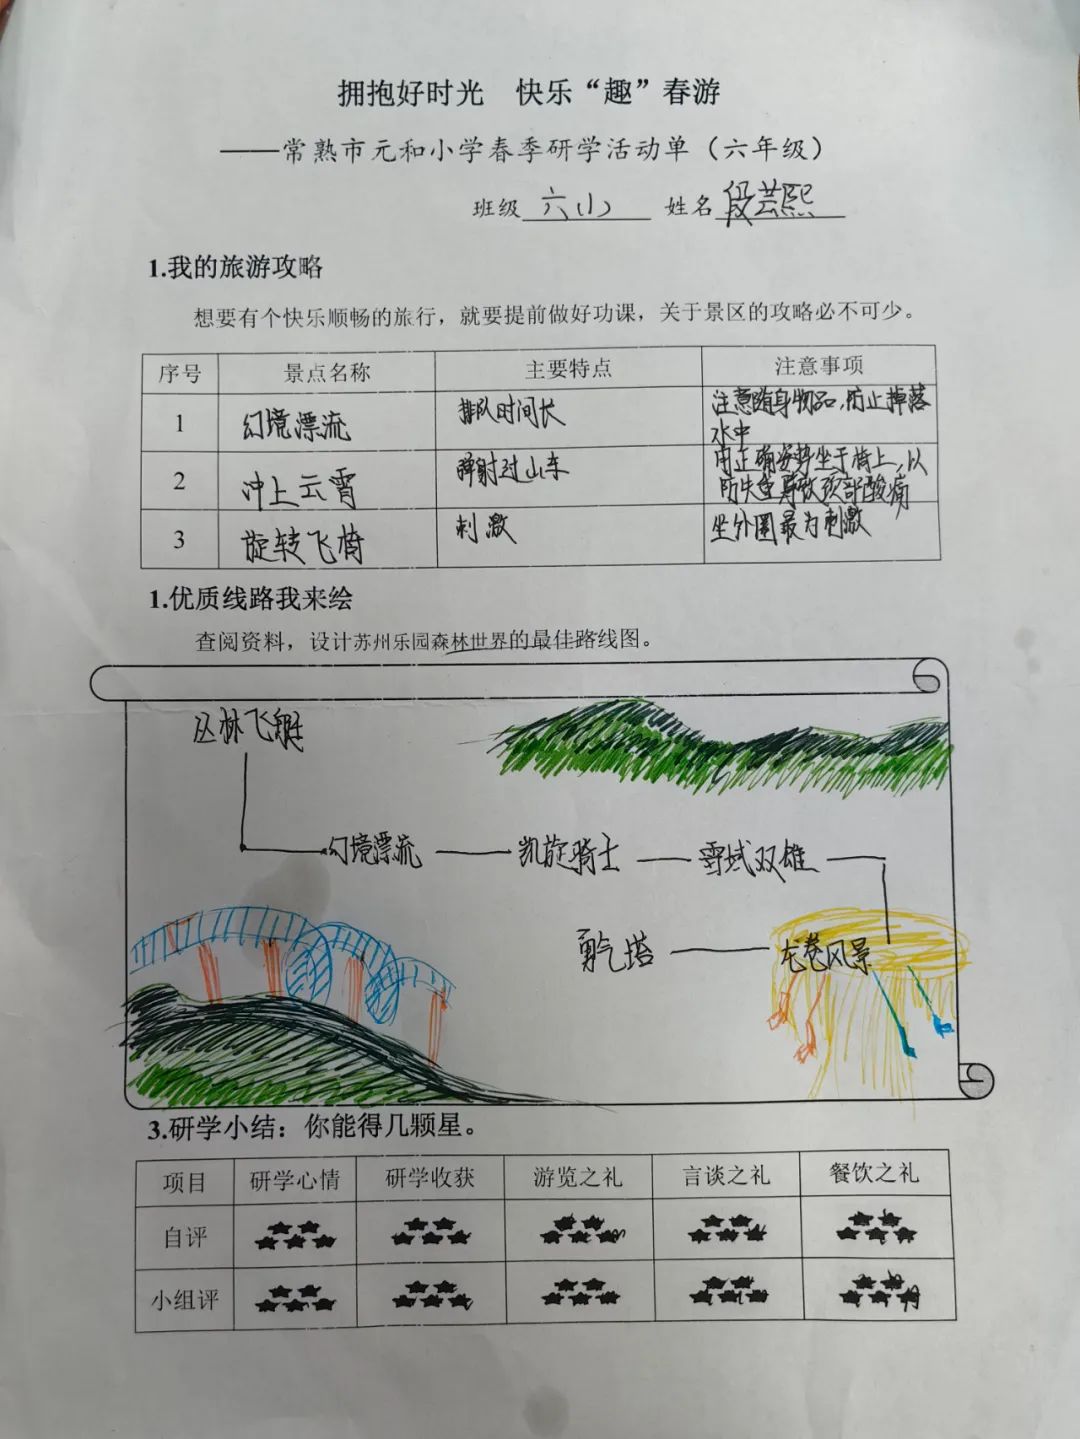 拥抱好时光　快乐“趣”春游
——常熟市元和小学春季研学活动单（六年级）
班级 六(1) 姓名 段芸熙
1.我的旅游攻略
想要有个快乐顺畅的旅行，就要提前做好功课，关于景区的攻略必不可少。
序号 景点名称 主要特点 注意事项
1 幻境漂流 排队时间长 注意随身物品，防止掉落水中
2 冲上云霄 弹射过山车 用正确姿势坐于椅上，以防失重导致颈部酸痛
3 旋转飞椅 刺激 坐外圈最为刺激
1.优质线路我来绘
查阅资料，设计苏州乐园森林世界的最佳路线图。
丛林飞艇
幻境漂流 凯旋骑士 雪域双雄
勇气塔 龙卷风暴
3.研学小结：你能得几颗星。
项目 研学心情 研学收获 游览之礼 言谈之礼 餐饮之礼
自评
小组评